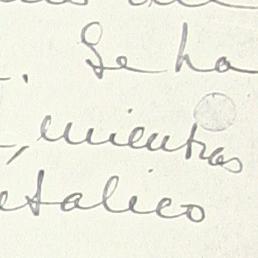 . Se ha
, mientras
etalico